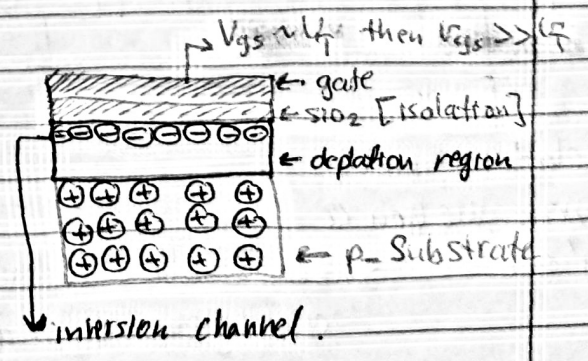 Vgs ~ VT then Vgs >> VT
← gate
← SiO2 [isolation]
← deplation region
← p_ Substrate
inversion channel.